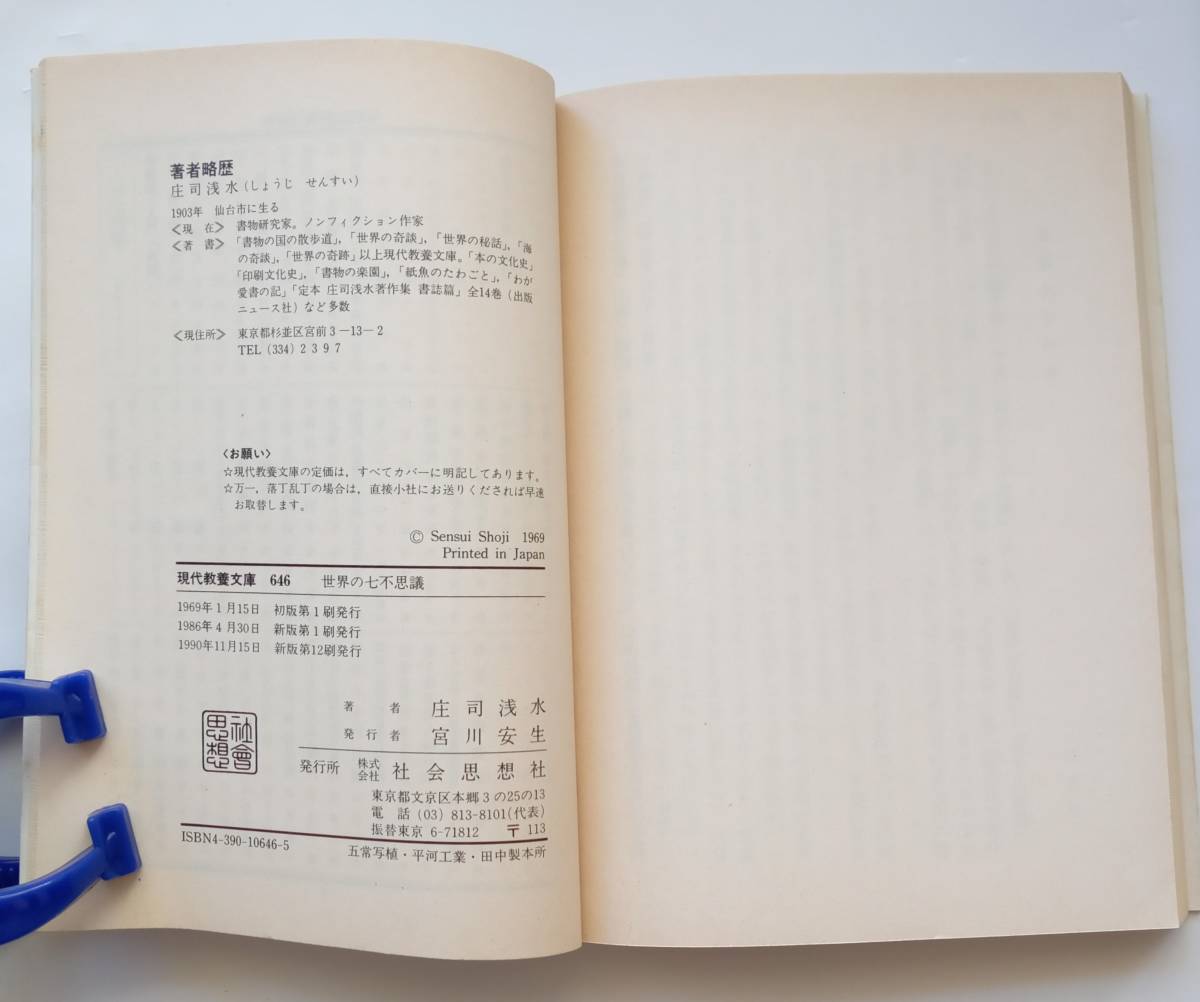 著者略歴
庄司浅水(しょうじ せんすい)
1903年 仙台市に生る
〈現 在〉 書物研究家。ノンフィクション作家
〈著 書〉「書物の国の散歩道」,「世界の奇談」,「世界の秘話」,「海
の奇談」,「世界の奇跡」以上現代教養文庫。「本の文化史」
「印刷文化史」,「書物の楽園」,「紙魚のたわごと」,「わが
愛書の記」「定本 庄司浅水著作集 書誌篇」全14巻(出版
ニュース社)など多数
〈現住所〉 東京都杉並区宮前3―13―2
TEL (334) 2397
〈お願い〉
☆現代教養文庫の定価は,すべてカバーに明記してあります。
☆万一,落丁乱丁の場合は,直接小社にお送りくだされば早速
お取替します。
© Sensui Shoji 1969
Printed in Japan
現代教養文庫 646 世界の七不思議
1969年1月15日 初版第1刷発行
1986年4月30日 新版第1刷発行
1990年11月15日 新版第12刷発行
著者 庄司浅水
発行者 宮川安生
発行所 株式会社 社会思想社
東京都文京区本郷3の25の13
電話 (03) 813-8101(代表)
振替東京 6-71812 〒113
社會思想
ISBN4-390-10646-5
五常写植・平河工業・田中製本所